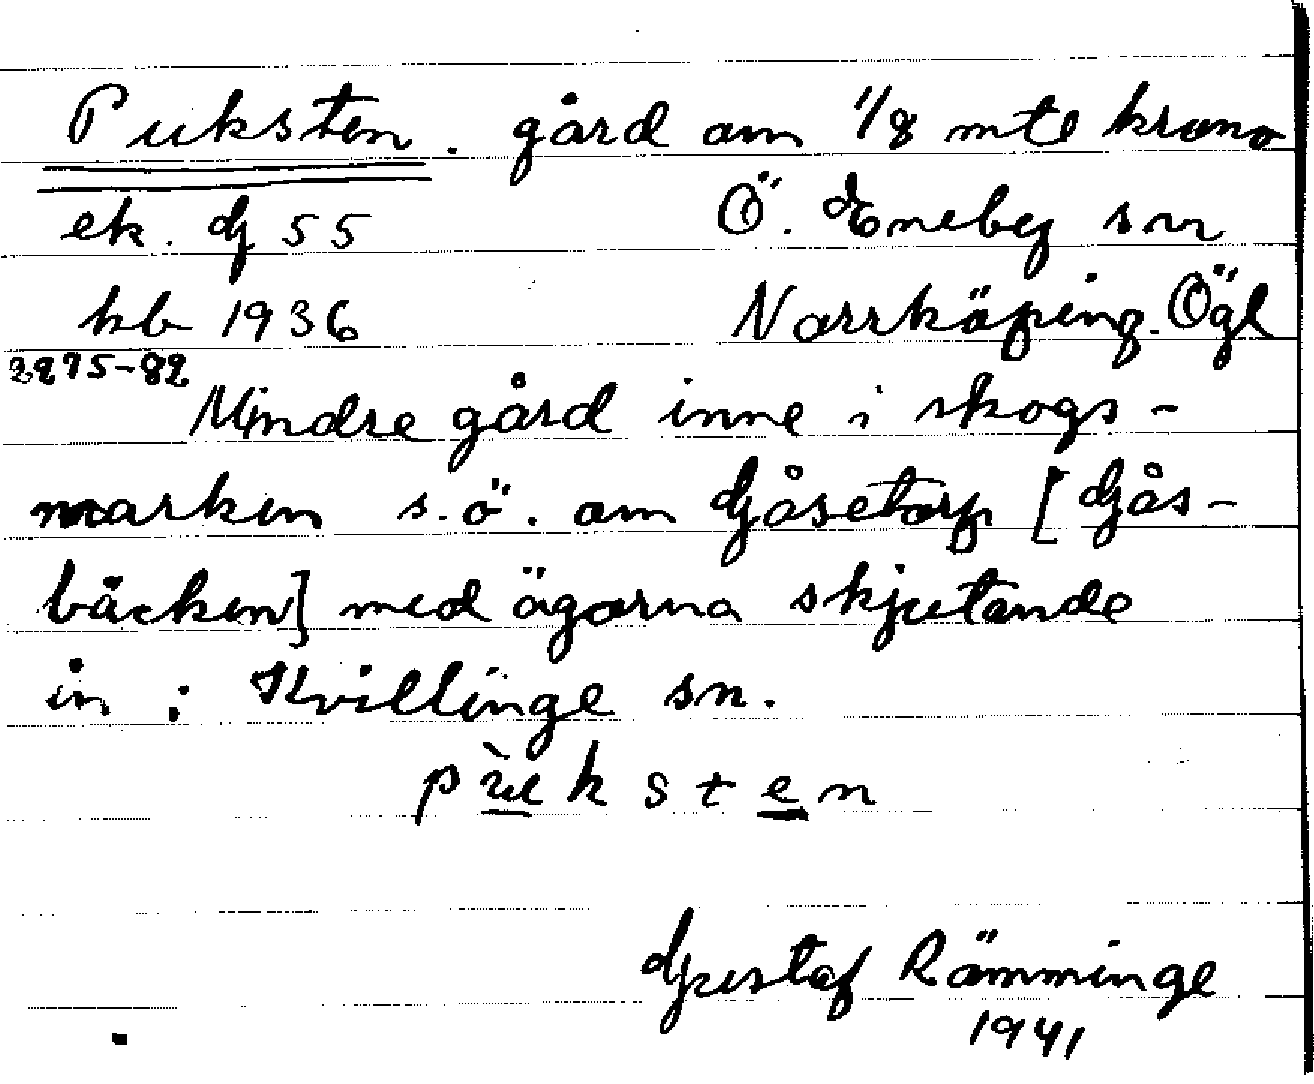 Puksten. gård om 1/8 mtl krono
ek. G 55 Ö. Eneby sn
kb 1936 Norrköping. Ögl
2275-82
Mindre gård inne i skogs-
marken s.ö. om Gåsetorp [Gås-
bäcken] med ägorna skjutande
in i Kvillinge sn.
pùksten
Gustaf Rämminge
1941